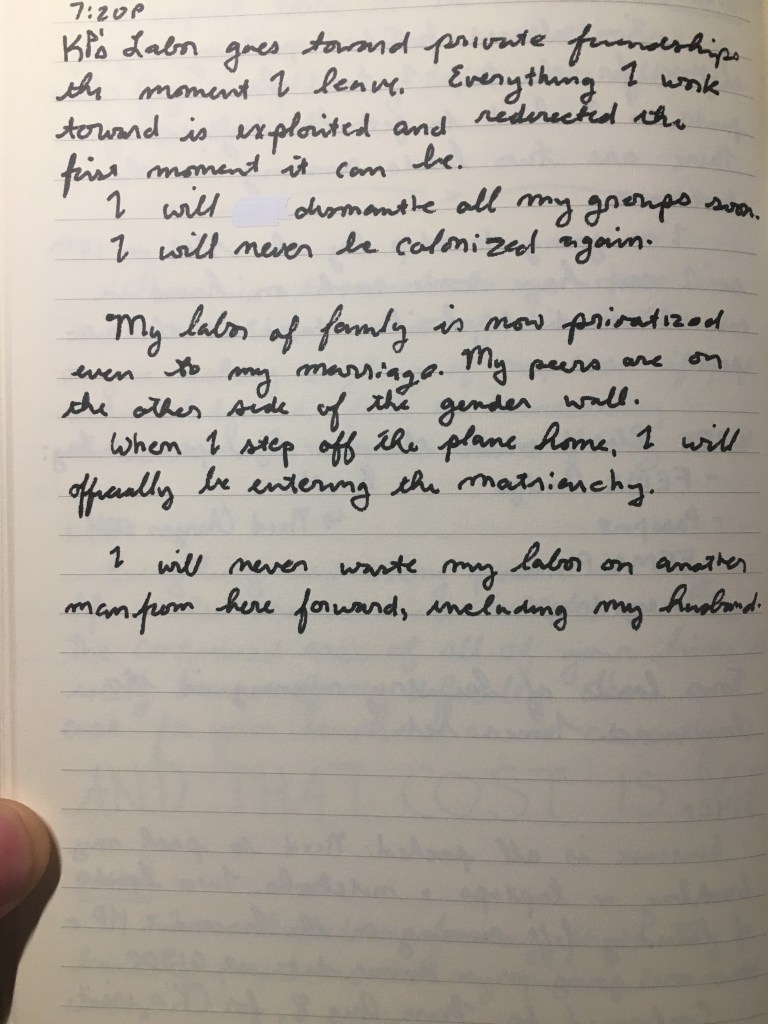 7:20P
KP's Labor goes toward private friendships
the moment I leave. Everything I work
toward is exploited and redirected the
first moment it can be.
I will dismantle all my groups soon.
I will never be colonized again.
My labor of family is now privatized
even to my marriage. My peers are on
the other side of the gender wall.
When I step off the plane home, I will
officially be entering the matriarchy.
I will never waste my labor on another
man from here forward, including my husband.
AND THAT COST IS